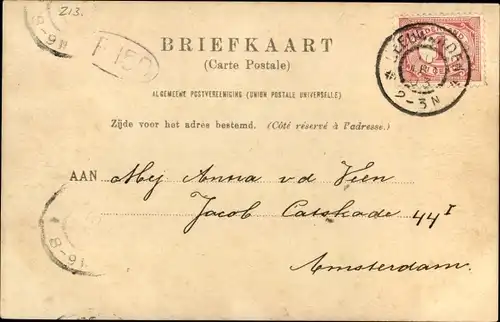 213.
8-9N
PIER
LEEUWARDEN
2-3N
BRIEFKAART
(Carte Postale)
ALGEMEENE POSTVEREENIGING (UNION POSTALE UNIVERSELLE)
Zijde voor het adres bestemd. (Côté réservé à l'adresse.)
AAN Mej Anna vd Veen
Jacob Catskade 44 I
Amsterdam.
8-9N